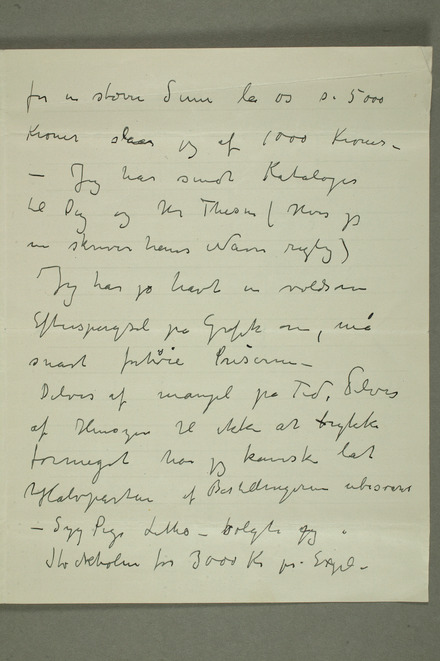 for en større Sum la os s. 5000
Kroner slaar jeg af 1000 Kroner –
– Jeg har sendt Kataloger
til Dig og Hr Thiis (Hvis jeg
nu skriver hans Navn rigtig)
Jeg har jo havt en voldsom
Efterspørgsel på Grafik nu, må
snart forhøie Priserne –
Delvis af mangel på Tid, Delvis
af Hensyn til ikke at trykke
formeget har jeg kanske latt
Halvparten af Bestillingerne ubesvart
– Syg Pige Litho – solgte jeg i
Stockholm for 3000 Kr pr. Expl –